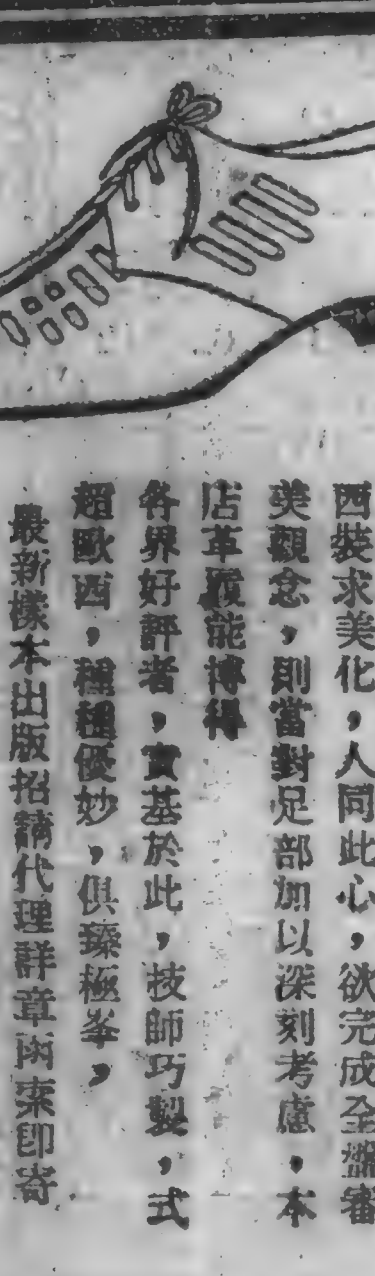 西裝求美化，人同此心，欲完成全盤審
美觀念，則當對足部加以深刻考慮，本
店革履能博得
各界好評者，實基於此，技師巧製，式
超歐西，種種優妙，俱臻極峯，
最新樣本出版招請代理詳章函索即寄